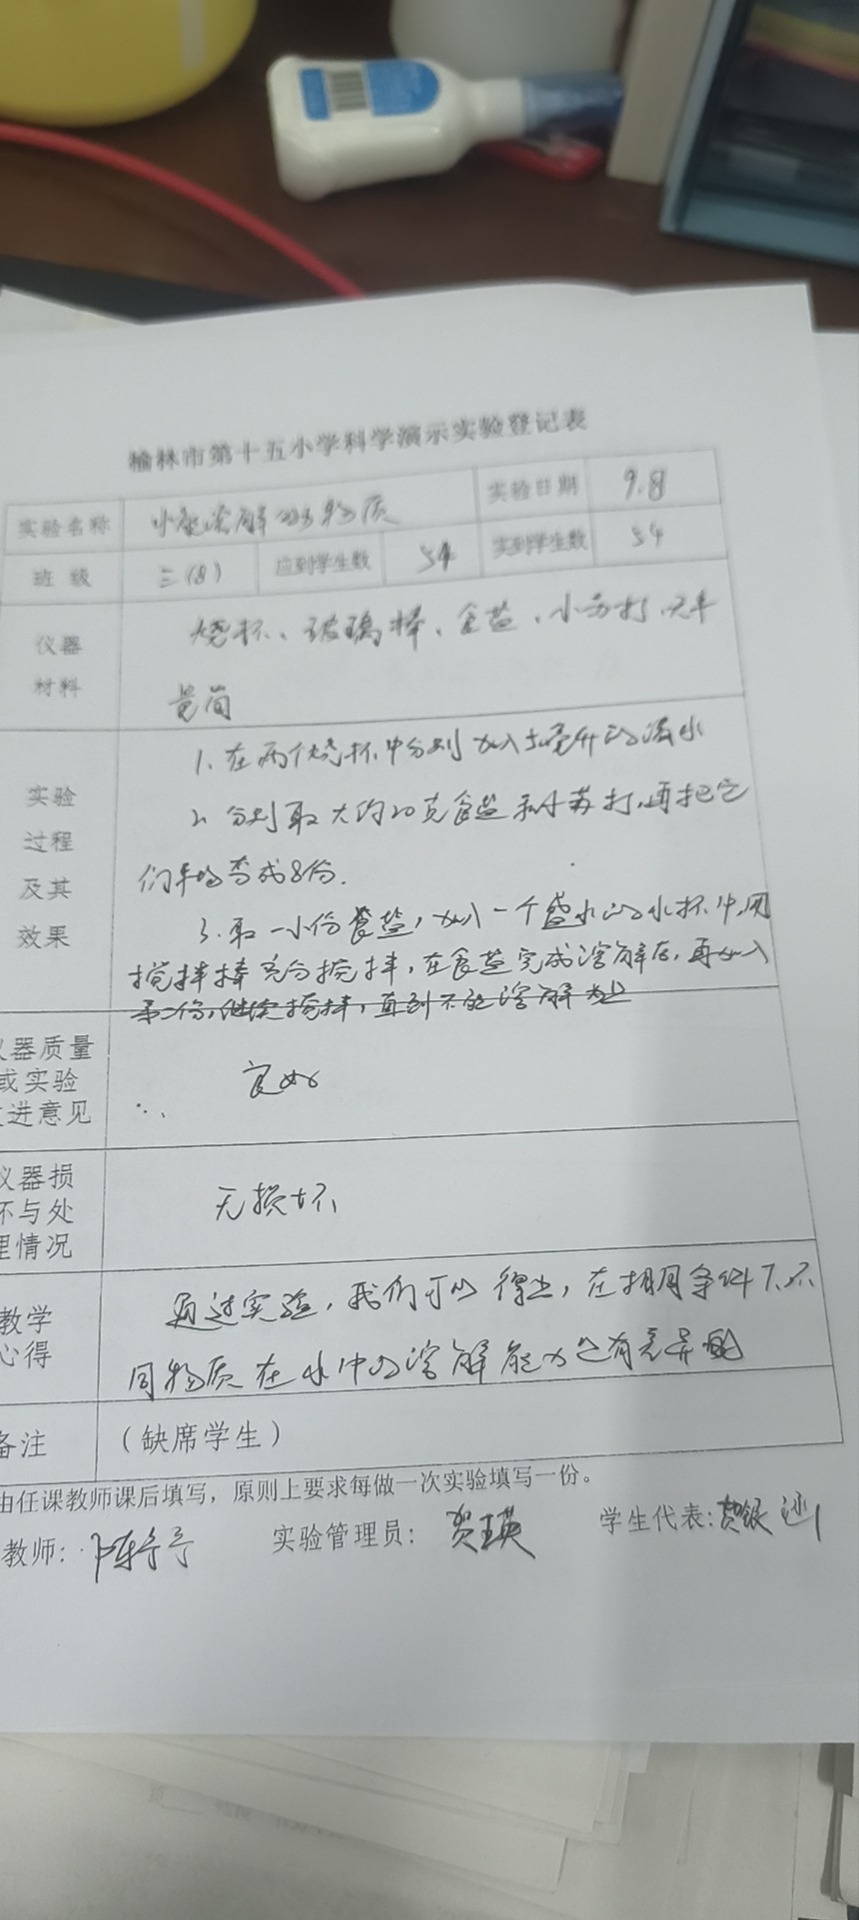 榆林市第十五小学科学演示实验登记表
实验名称 水能溶解的物质 实验日期 9.8
班 级 三(8) 应到学生数 54 实到学生数 54
仪器 烧杯、玻璃棒、食盐、小苏打、天平
材料 量筒
1、在两个烧杯中分别加入 毫升的清水
实验
2、分别取大约20克食盐和小苏打,再把它
过程
及其 们平均分成8份.
效果 3、取一小份食盐,加入一个盛水的水杯中,用
搅拌棒充分搅拌,在食盐完成溶解后,再加入
第二份,继续搅拌,直到不能溶解为止
仪器质量
或实验 良好
进意见
仪器损
坏与处 无损坏
理情况
教学 通过实验,我们可以得出,在相同条件下,不
心得 同物质在水中的溶解能力是有差异的
备注 (缺席学生)
由任课教师课后填写,原则上要求每做一次实验填写一份。
教师: 陈 实验管理员: 贺 学生代表: